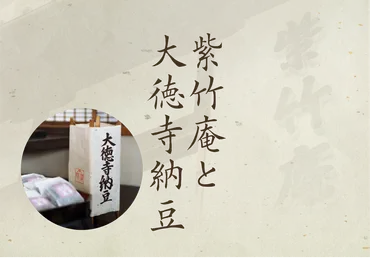 紫竹庵と
大徳寺納豆
大徳寺納豆
紫竹庵